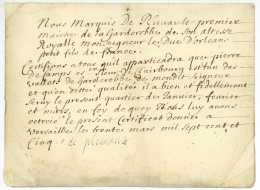 Nous Marquis De premier
de la garderobbe de Son altesse
Royalle Monseigneur le Duc D'orleans
petit fils de france
Certifions a tous quil appartiendra que pierre
est lun des
de garderobbe de mondit Seigneur
et quen cette qualité il a bien et fidellement
Servy le present quartier de Janvier, fevrier
et mars, en foy de quoy Nous luy avons
octroié le present Certificat donné a
Versailles le trente mars mil sept cent et
Cinq